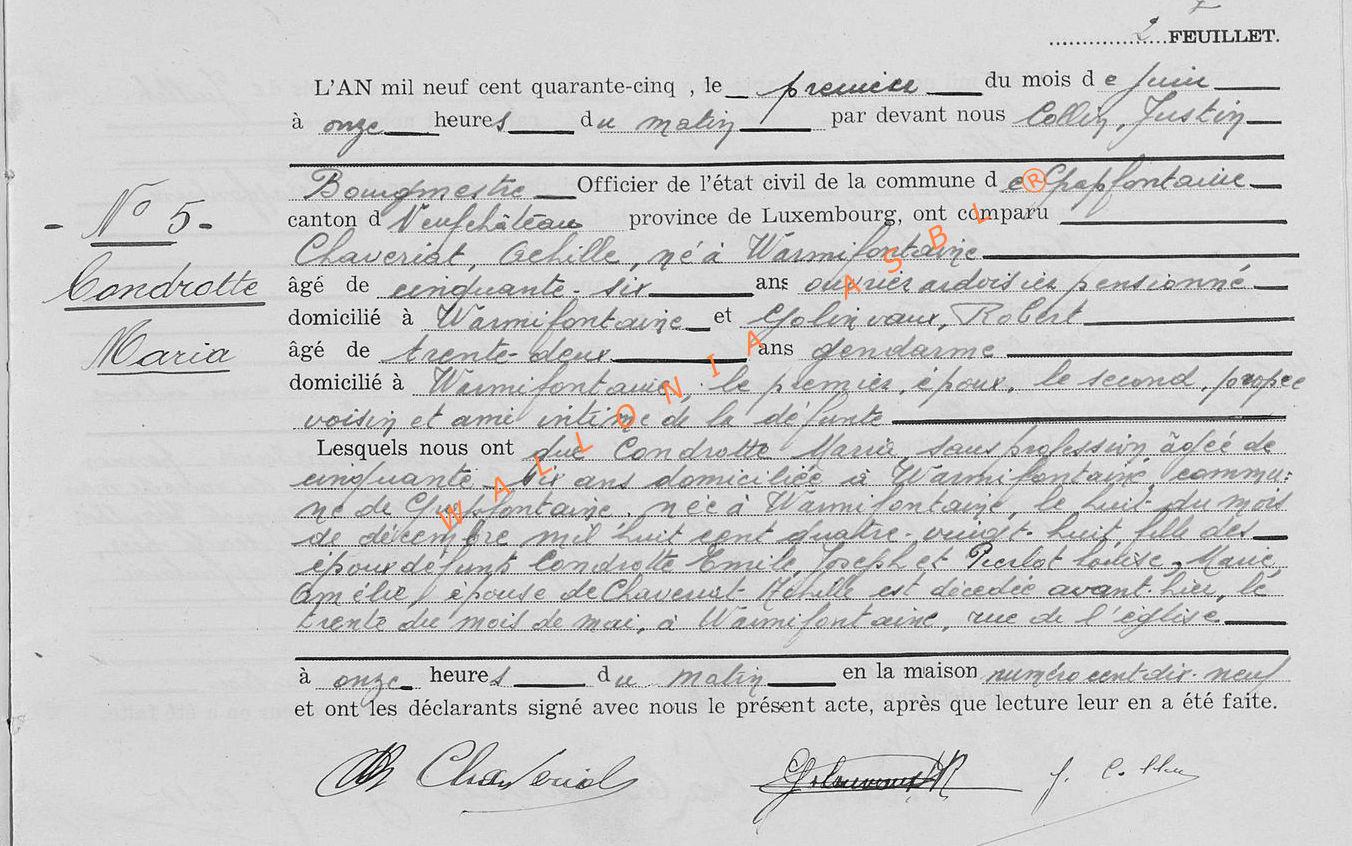 2 FEUILLET.
L'AN mil neuf cent quarante-cinq , le premier du mois de Juin
à onze heures du matin par devant nous Collin, Justin
Bourgmestre Officier de l'état civil de la commune de Grapfontaine
canton d Neufchâteau province de Luxembourg, ont comparu
- No 5 -
Chaveriat, Achille, né à Warmifontaine
Condrotte
âgé de cinquante-six ans ouvrier ardoisier pensionné
domicilié à Warmifontaine et Golinvaux, Robert
Maria
âgé de trente-deux ans gendarme
domicilié à Warmifontaine, le premier, époux, le second, propre
voisin et ami intime de la défunte
Lesquels nous ont que Condrotte Maria, sans profession, âgée de
cinquante-six ans domiciliée à Warmifontaine, commu-
ne de Grapfontaine, née à Warmifontaine, le huit du mois
de décembre mil huit cent quatre-vingt-huit, fille des
époux défunts Condrotte Emile, Joseph et Pierlot Louise, Marie,
Amélie, épouse de Chaveriat Achille est décédée avant-hier, le
trente du mois de mai, à Warmifontaine, rue de l'église
à onze heures du matin en la maison numéro cent-dix-neuf
et ont les déclarants signé avec nous le présent acte, après que lecture leur en a été faite.
Chaveriat Golinvaux R J. Collin
WALLONIA ASBL ®